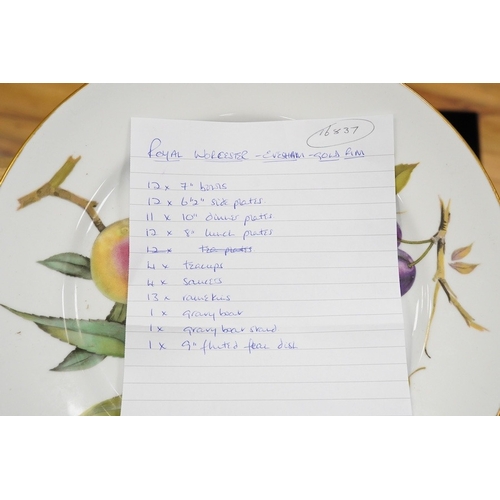 16837
ROYAL WORCESTER - EVESHAM - GOLD RIM
12 x 7" bowls
12 x 6½" side plates
11 x 10" dinner plates
12 x 8" lunch plates
12 x tea plates
4 x teacups
4 x saucers
13 x ramekins
1 x gravy boat
1 x gravy boat stand
1 x 9" fluted flan dish